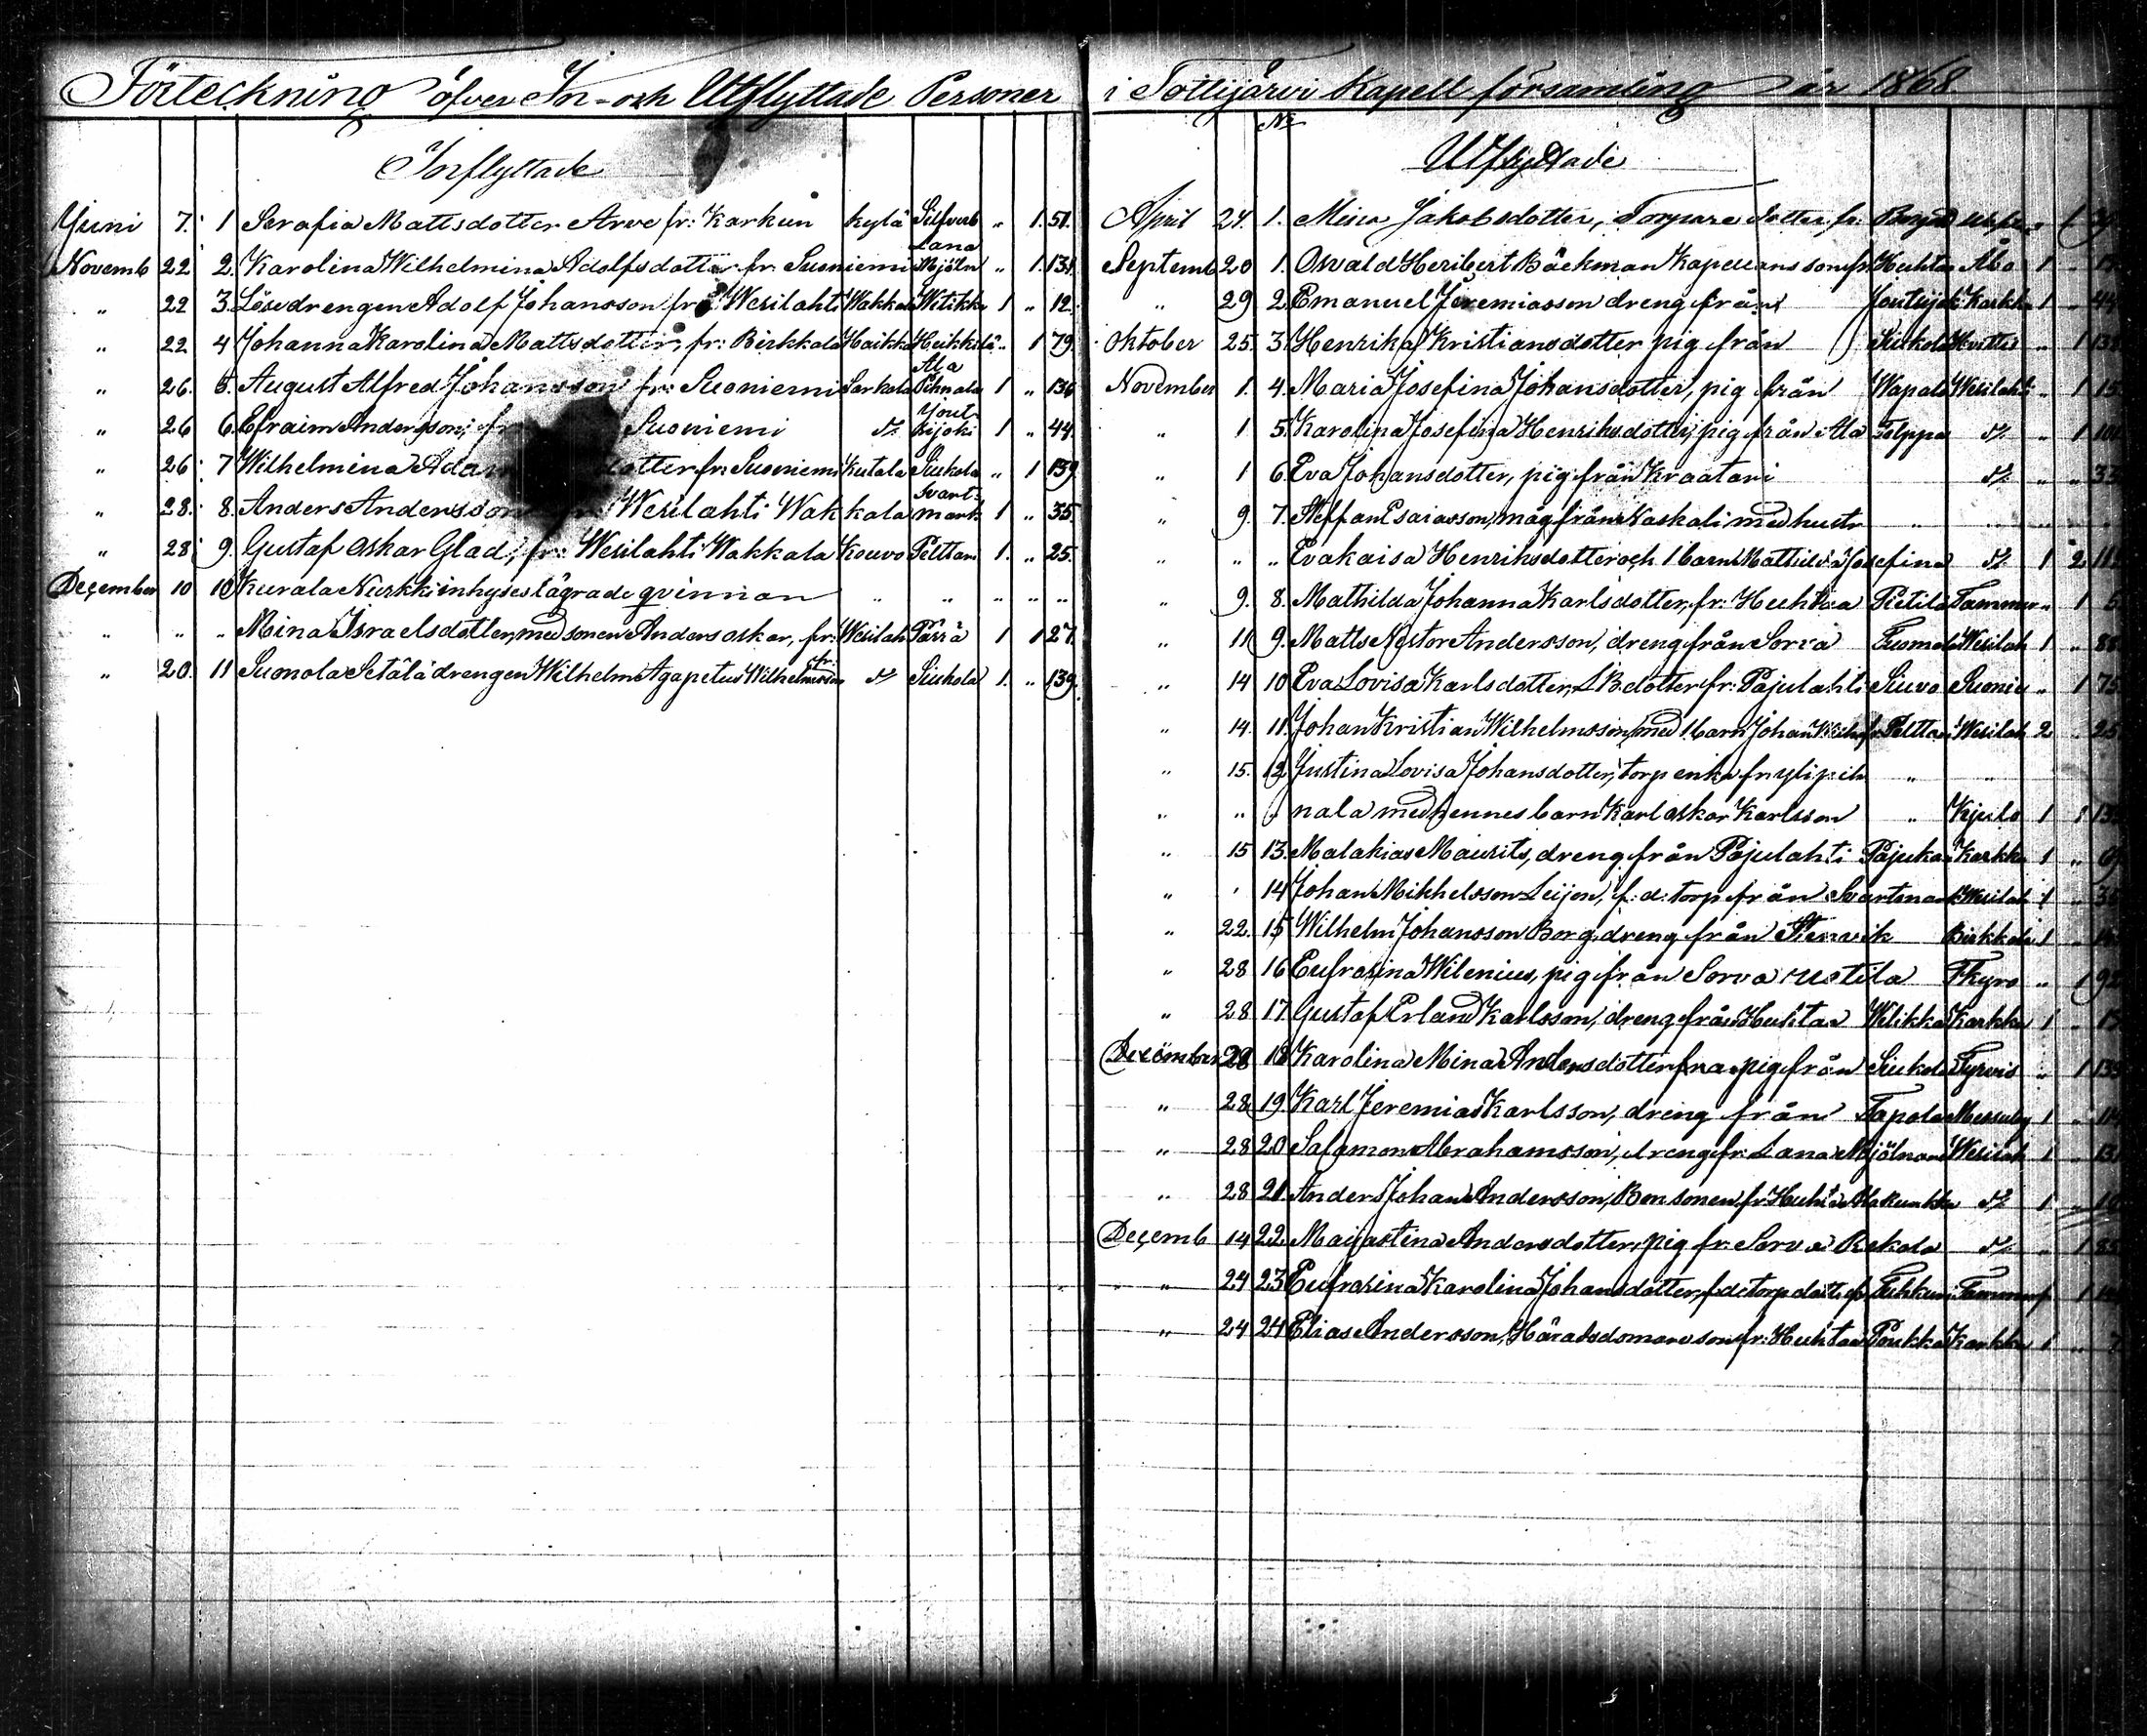 Förteckning öfver In- och Utflyttade Personer i Tottijärvi Kapell församling år 1868
Inflyttade
Juni 7. 1 Serafia Mattsdotter Arve fr: Karkun kylä Silfverb " 1. 51.
Lana
Novemb 22 2. Karolina Wilhelmina Adolfsdotter fr. Suoniemi Mjöln " 1. 131.
" 22 3. Lösedrengen Adolf Johansson fr: Wesilahti Wakkala Witikka 1 " 12.
" 22 4 Johanna Karolina Mattsdotter, fr: Birkkala Haikka Heikkilä " 1 79.
Ala
" 26. 5. August Alfred Johansson fr: Suoniemi Sarkola Pihnala 1 " 136
Jout-
" 26 6. Efraim Andersson, fr Suoniemi d:o sijoki 1 " 44.
" 26. 7 Wilhelmina Adam dotter fr: Suoniemi Kutala Siukola " 1 139.
Svart-
" 28. 8. Anders Andersson Wesilahti Wakkala mark 1 " 35.
" 28 9. Gustaf Oskar Glad, fr: Wesilahti Wakkala Kouvo Pelttari 1. " 25.
December 10 10 Kurala Nurkki inhyses lägrade qvinnan " " " " "
" " " Mina Israelsdotter, med sonen Anders oskar, fr: Wesilah Pärrä 1 1 27.
fr:
" 20. 11 Suonola Setälä drengen Wilhelm Agapetus Wilhelmsson d:o Siukola 1. " 139.
No
Utflyttade
April 24. 1. Mina Jakobsdotter, Torpare dotter, fr: 1
Septemb 20 1. Osvald Heribert Bäckman Kapellans son fr: Huhtaa Åbo 1 "
" 29 2. Emanuel Jeremiasson dreng från Joutsijoki Karkku 1 " 44
Oktober 25. 3. Henrika Kristiansdotter pig från Siukola Hvittis " 1 139
November 1. 4. Maria Josefina Johansdotter, pig från Wapala Wesilahti " 1 15
" 1 5. Karolina Josefina Henriksdotter, pig från Ala Tolppa d:o " 1
" 1 6. Eva Johansdotter, pig från Kraatari d:o " " 33
" 9. 7. Steffan Esaiasson, måg från Kaskali med hustr " " "
" " " Eva kaisa Henriksdotter och 1 barn Mathilda Josefina d:o 1 2 11
" 9. 8. Mathilda Johanna Karlsdotter, fr: Huhtaa Pietila Tammer " 1 5
" 11 9. Matts Nestor Andersson, dreng från Sorva Tuomola Wesilah 1 " 88
" 14 10 Eva Lovisa Karlsdotter, L B. dotter fr: Pajulahti Siuvo Suonie " 1 75
" 14. 11. Johan Kristian Wilhelmsson, med 1 barn Johan Wilh fr Pelttari Wesilah 2 " 25
" 15. 12. Justina Lovisa Johansdotter, torp enka fr. ylipih " "
" " " nala med hennes barn Karl oskar Karlsson " Kjulo 1 1 13
" 15 13. Malakias Maurits, dreng från Pajulahti Pajukan Karkku 1 " 69
" " 14 Johan Mikkelsson Leijon, f: d: torp från Svartmark Wesilah 1 " 3
" 22. 15 Wilhelm Johansson Borg, dreng från Stenvik Birkkala 1 "
" 28 16 Eufrosina Wilenius, pig från Sorva Ustila T. kyro " 1 92
" 28 17. Gustaf Erland Karlsson, dreng från Huhtaa Witikka Karkku 1 " 1
December 28 18 Karolina Mina Andersdotter pig från Siukola Tyrvis " 1 139
" 28 19. Karl Jeremias Karlsson, dreng från Tapola Messuby 1 "
" 28 20 Salomon Abrahamsson, dreng fr: Lana Mjölnar Wesilah 1 " 13
" 28 21. Anders Johan Andersson, Bonsonen, fr: Huhtaa d:o 1 " 1
Decemb 14 22. Maijastina Andersdotter, pig fr: Sorva Rekola d:o " 1 8
" 24 23 Eufrosina Karolina Johansdotter, f: d: torp dott. fr Tammerf 1 1
" 24 24 Elias Andersson, Häradsdomare son fr: Huhtaa Poukka Karkku 1 " 7